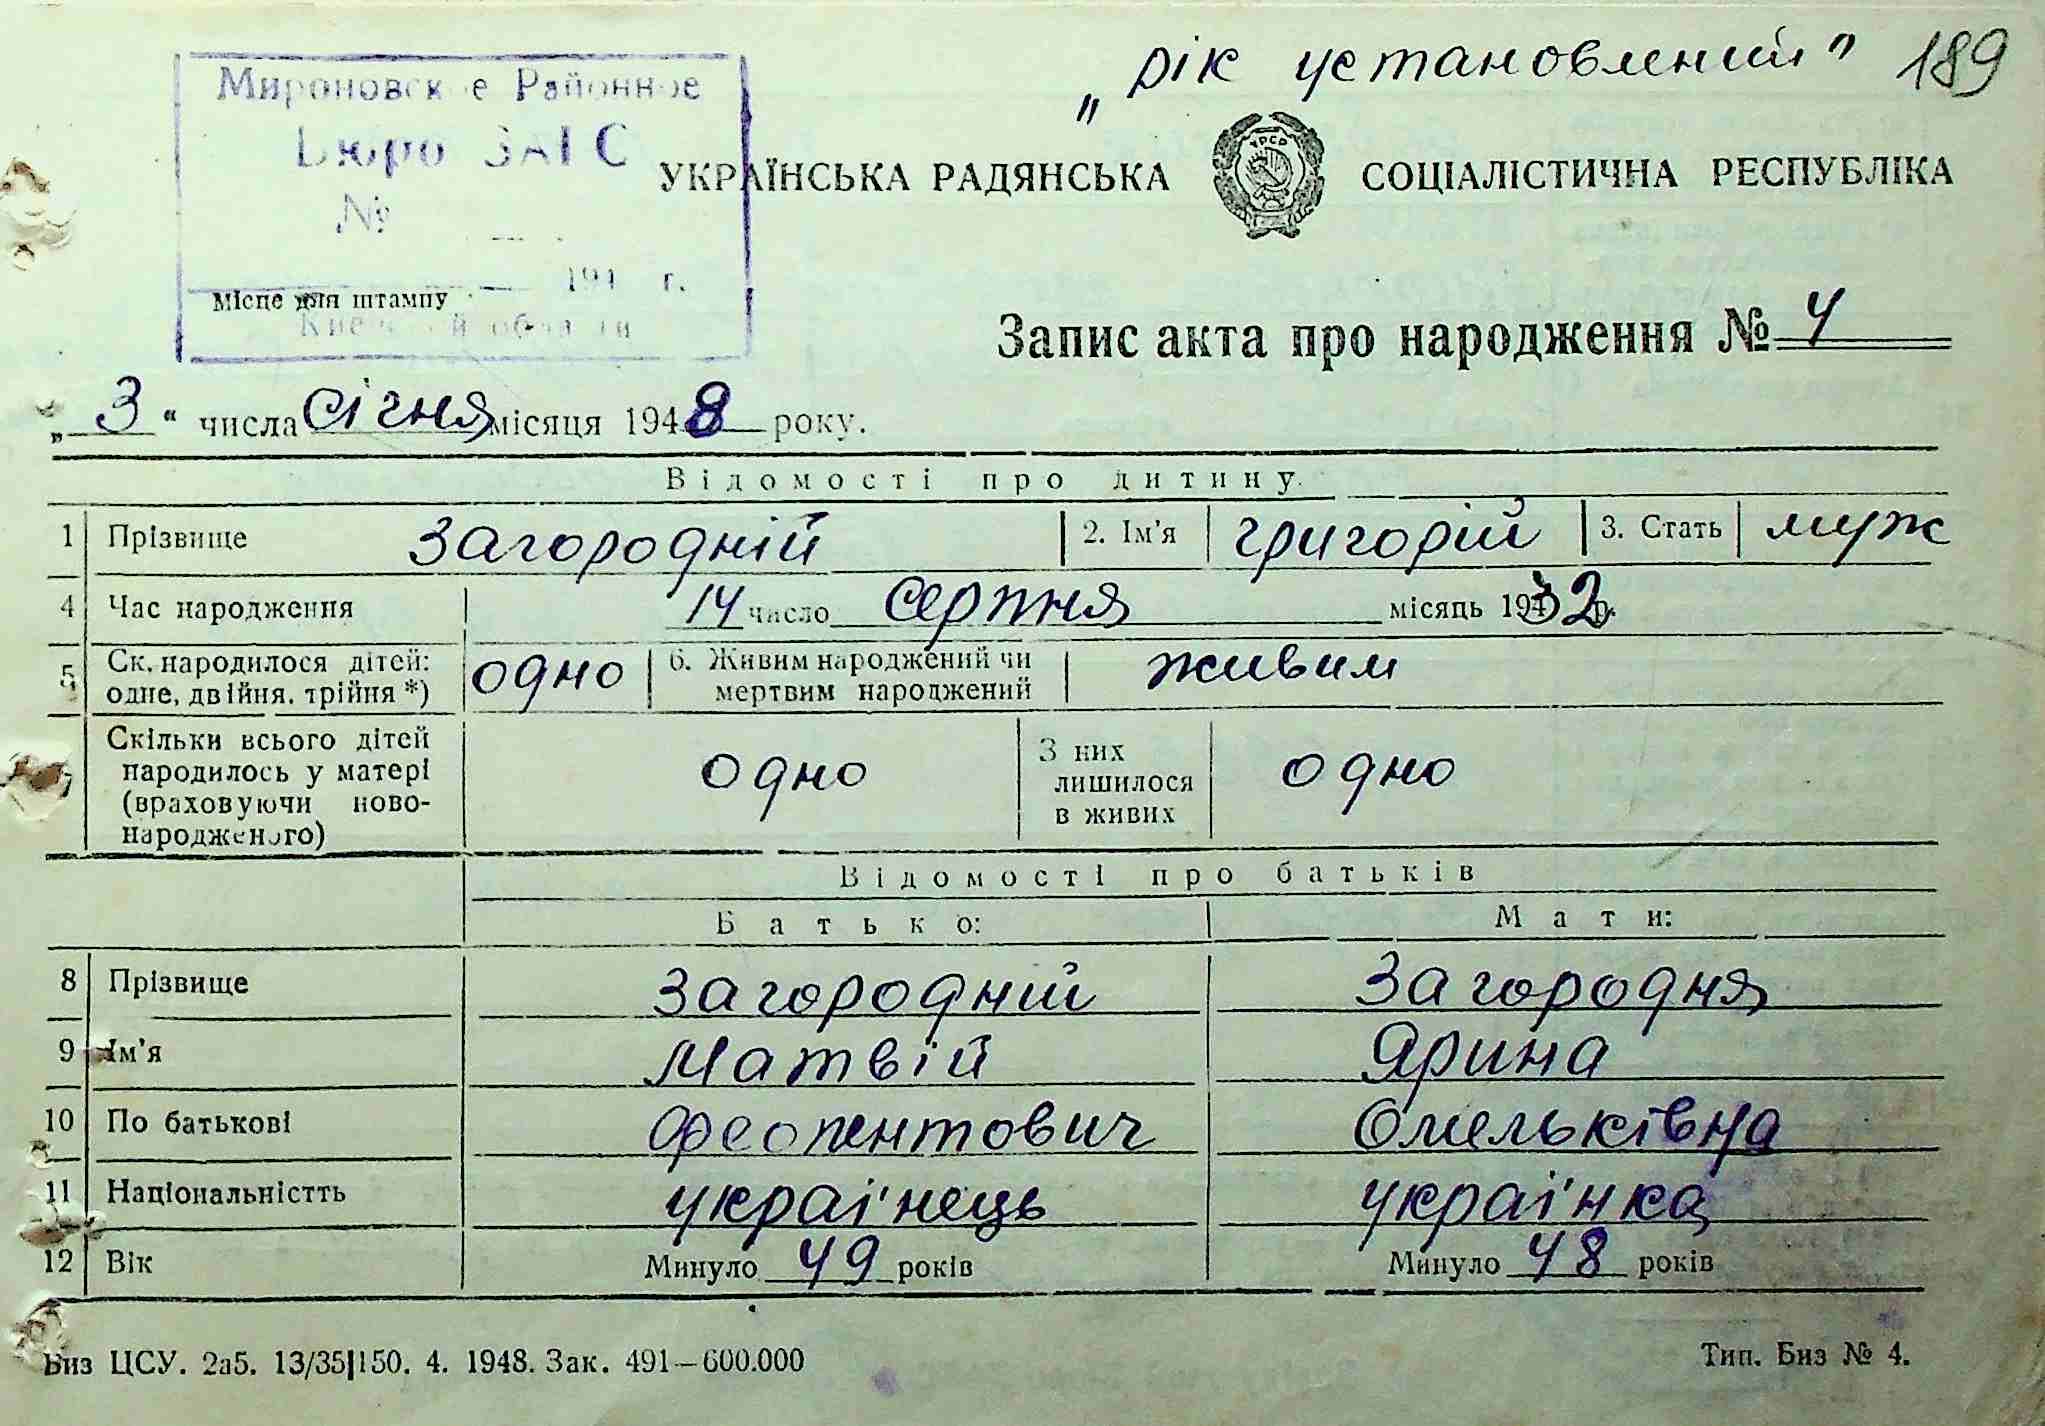 „рік установлений" 189
Мироновское Районное
Бюро ЗАГС
№
194 г.
Місце для штампу
Киевской области
УКРАЇНСЬКА РАДЯНСЬКА СОЦІАЛІСТИЧНА РЕСПУБЛІКА
УРСР
Запис акта про народження № 4
„ 3 “ числа січня місяця 1948 року.
Відомості про дитину
1 Прізвище Загородній 2. Ім’я Григорій 3. Стать муж
4 Час народження 14 число серпня місяць 1932 р.
5 Ск. народилося дітей: одне, двійня, трійня *) одно 6. Живим народжений чи мертвим народжений живим
7 Скільки всього дітей
народилось у матері
(враховуючи ново-
народженого)
одно
З них
лишилося
в живих
одно
Відомості про батьків
Батько: Мати:
8 Прізвище Загородний Загородня
9 Ім’я Матвій Ярина
10 По батькові Феопентович Омельківна
11 Національністть українець українка
12 Вік Минуло 49 років Минуло 48 років
Биз ЦСУ. 2а5. 13/35|150. 4. 1948. Зак. 491—600.000 Тип. Биз № 4.